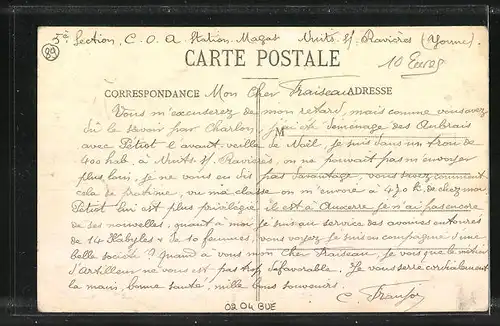 5e Section, C.O.A Station Magas Nuits s/ Ravières (Yonne)
89
CARTE POSTALE
10 Euros
CORRESPONDANCE Mon Cher Fraiseau ADRESSE
Vous m'excuserez de mon retard, mais comme vous avez
dû le savoir par Charlon, j'ai été déménagé des Aubrais
M
avec Pétiot l'avant veille de Noël, je suis dans un trou de
400 hab, à Nuits s/ Ravières, on ne pouvait pas m'envoyer
plus loin, je ne vous en dis pas davantage, vous savez comment
cela se pratique, vu ma classe on m'envoie à 470 k. de chez moi
Pétiot lui est plus privilégié il est à Auxerre je n'ai pas encore
de ses nouvelles, quant à moi je suis au service des avoines entourés
de 14 Kabyles & de 10 femmes, vous voyez je suis en compagnie d'une
belle société ? Quand à vous mon Cher Fraiseau, je vois que le métier
d'artilleur ne vous est pas trop défavorable. Je vous serre cordialement
la main, bonne santé, mille bons souvenirs.
C.
02 04 BUE